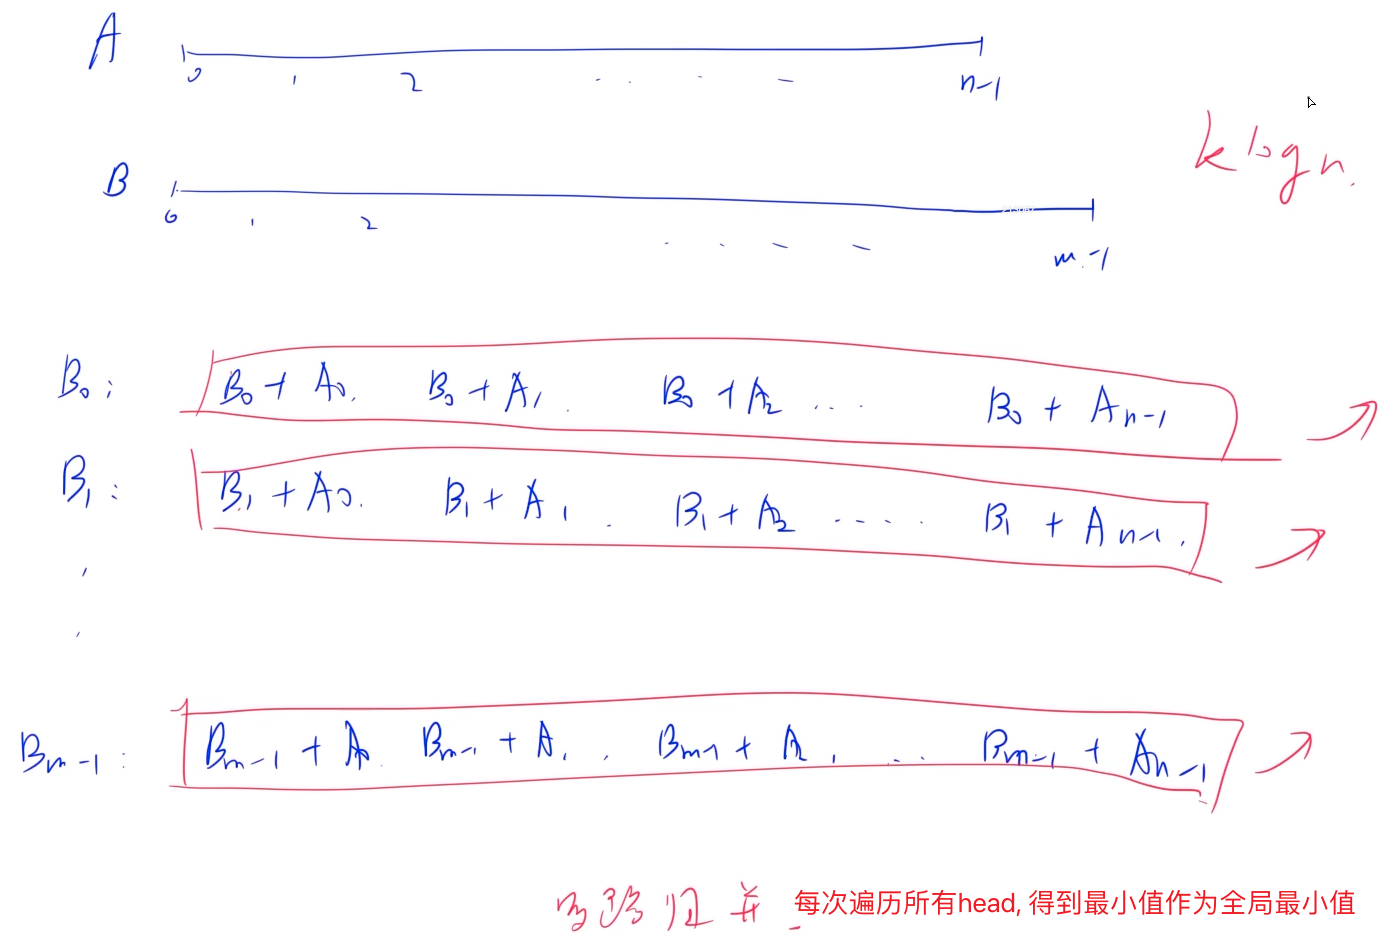 A
0 1 2 . . . - n-1
k log n.
B
0 1 2 . . - - m-1
B₀: B₀ + A₀. B₀ + A₁. B₀ + A₂ ... B₀ + Aₙ₋₁
B₁: B₁ + A₀. B₁ + A₁. B₁ + A₂ ..... B₁ + Aₙ₋₁.
Bₘ₋₁: Bₘ₋₁ + A₀. Bₘ₋₁ + A₁.. Bₘ₋₁ + A₂. ... Bₘ₋₁ + Aₙ₋₁
多路归并 每次遍历所有head, 得到最小值作为全局最小值